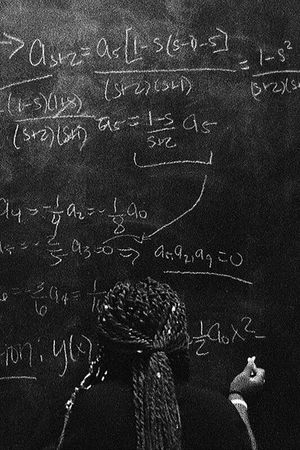 → a_{s+2} = \frac{a_s[1-s(s-1)-s]}{(s+2)(s+1)} = \frac{1-s^2}{(s+2)(s+1)}
\frac{(1-s)(1+s)}{(s+2)(s+1)} a_s = \frac{1-s}{s+2} a_s
a_4 = -\frac{1}{4} a_2 = -\frac{1}{8} a_0
= -\frac{2}{5} a_3 = 0 ⇒ a_5, a_2, a_7 = 0
= -\frac{3}{6} a_4 =
ion: y(x) \frac{1}{2} a_0 x^2 -